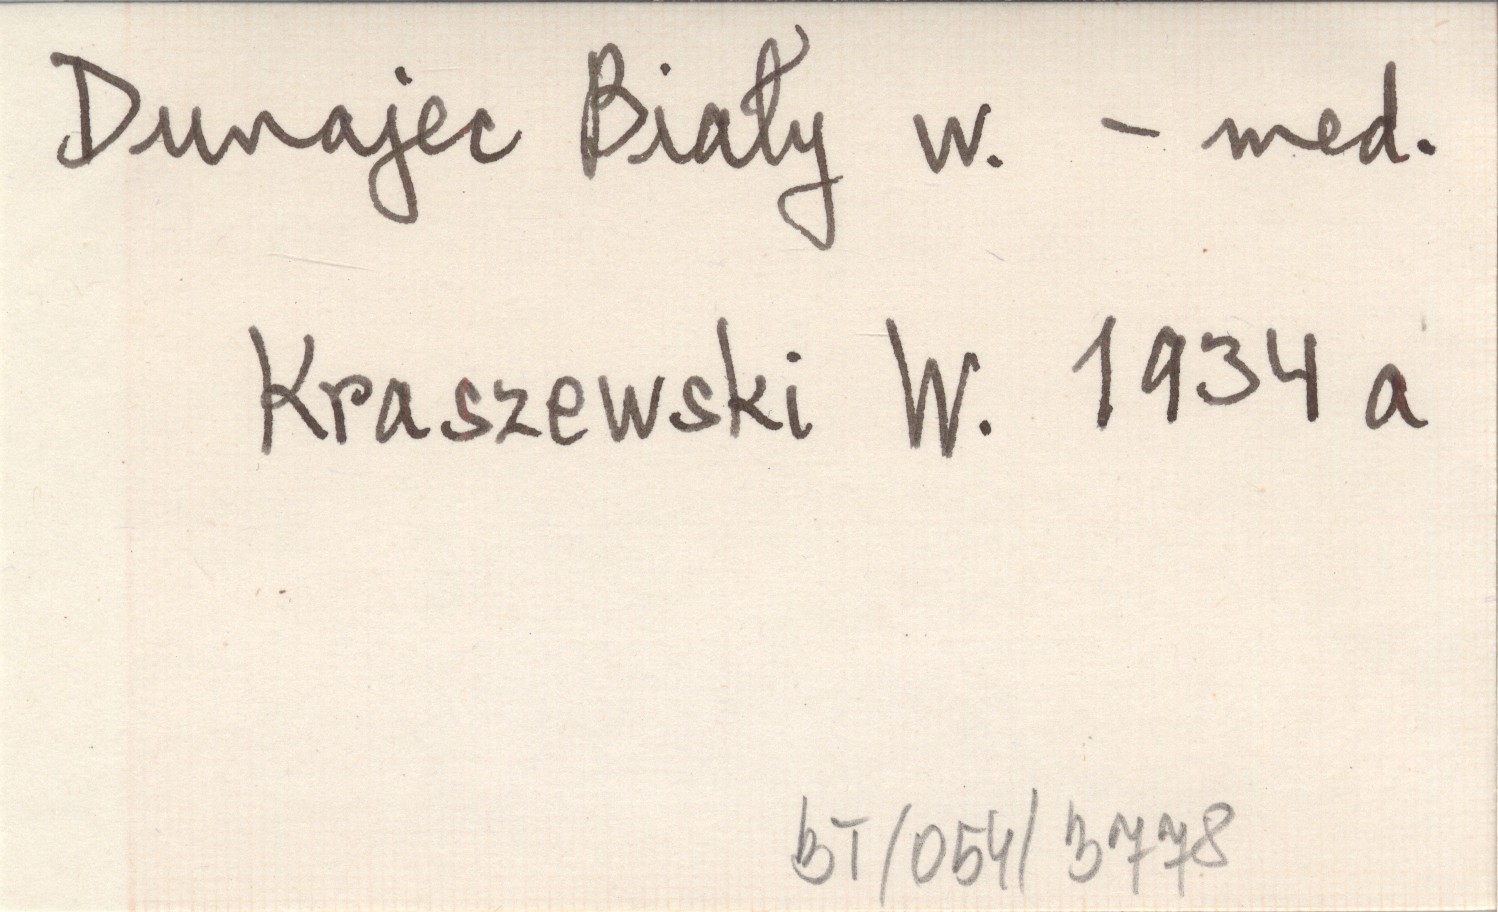 Dunajec Biały w. - med.
Kraszewski W. 1934 a
BT/054/3778